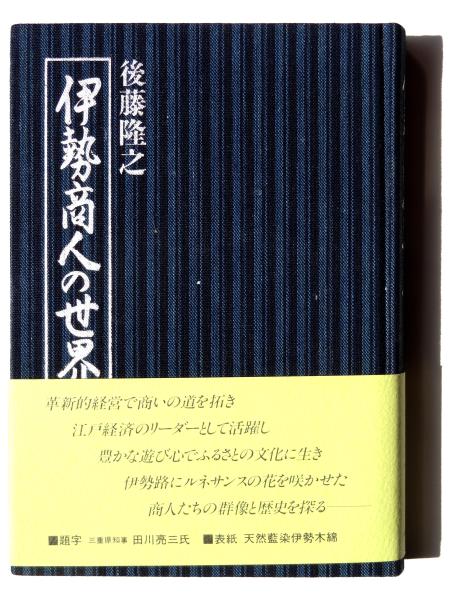 後藤隆之
伊勢商人の世界
革新的経営で商いの道を拓き
江戸経済のリーダーとして活躍し
豊かな遊び心でふるさとの文化に生き
伊勢路にルネサンスの花を咲かせた
商人たちの群像と歴史を探る――
■題字 三重県知事 田川亮三氏 ■表紙 天然藍染伊勢木綿